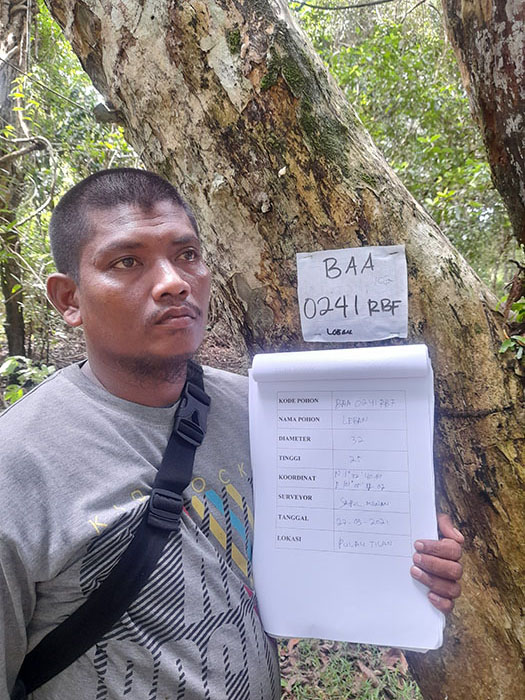 BAA
0241 RBF
LOBAN
KODE POHON BAA 0241 RBF
NAMA POHON LEBAN
DIAMETER 32
TINGGI 25
KOORDINAT
SURVEYOR
TANGGAL 22-03-2021
LOKASI PULAU TILAN